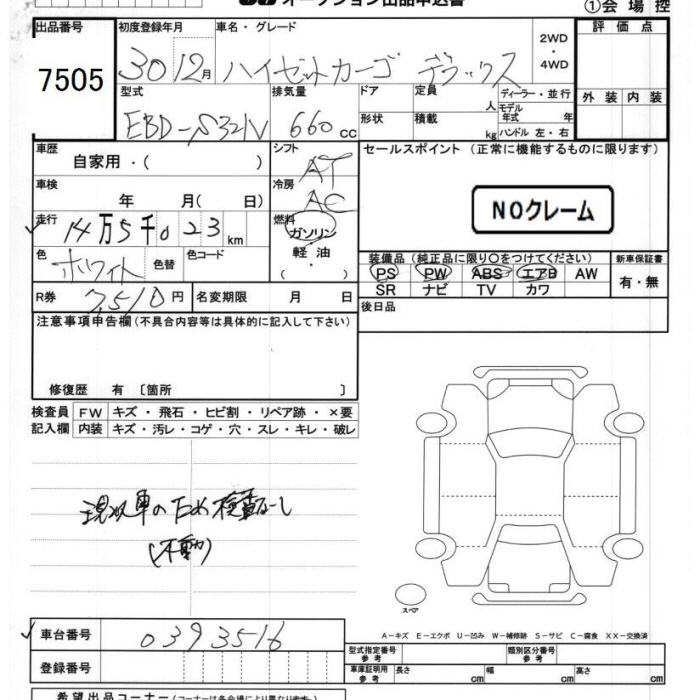 オークション出品申込書
①会場控
出品番号
7505
初度登録年月
30 12月
車名・グレード
ハイゼットカーゴ デラックス
2WD
・
4WD
評価点
外装 内装
型式
EBD-S321V
排気量
660 cc
ドア
形状
定員
人
積載
kg
ディーラー・並行
モデル年式 年
ハンドル 左・右
車歴
自家用・( )
車検
年 月( 日)
走行
14万5千023 km
色
ホワイト
色替
色コード
R券
7,510円
名変期限 月 日
シフト
AT
冷房
AC
燃料
ガソリン
軽油
( ・ )
セールスポイント (正常に機能するものに限ります)
NOクレーム
装備品 (純正品に限り○をつけてください)
PS PW ABS エアB AW
SR ナビ TV カワ
新車保証書
有・無
後日品
注意事項申告欄(不具合内容等は具体的に記入して下さい)
修復歴 有 〔箇所 〕
検査員 FW キズ・飛石・ヒビ割・リペア跡・×要
記入欄 内装 キズ・汚レ・コゲ・穴・スレ・キレ・破レ
現状車のため検査なし
(不動)
スペア
A-キズ E-エクボ U-凹み W-補修跡 S-サビ C-腐食 XX-交換済
車台番号
0393516
登録番号
型式指定番号
参考
類別区分番号
参考
車庫証明用
参考
長さ cm 幅 cm 高さ cm
希望出品コーナー(コーナーは各会場により異なります)